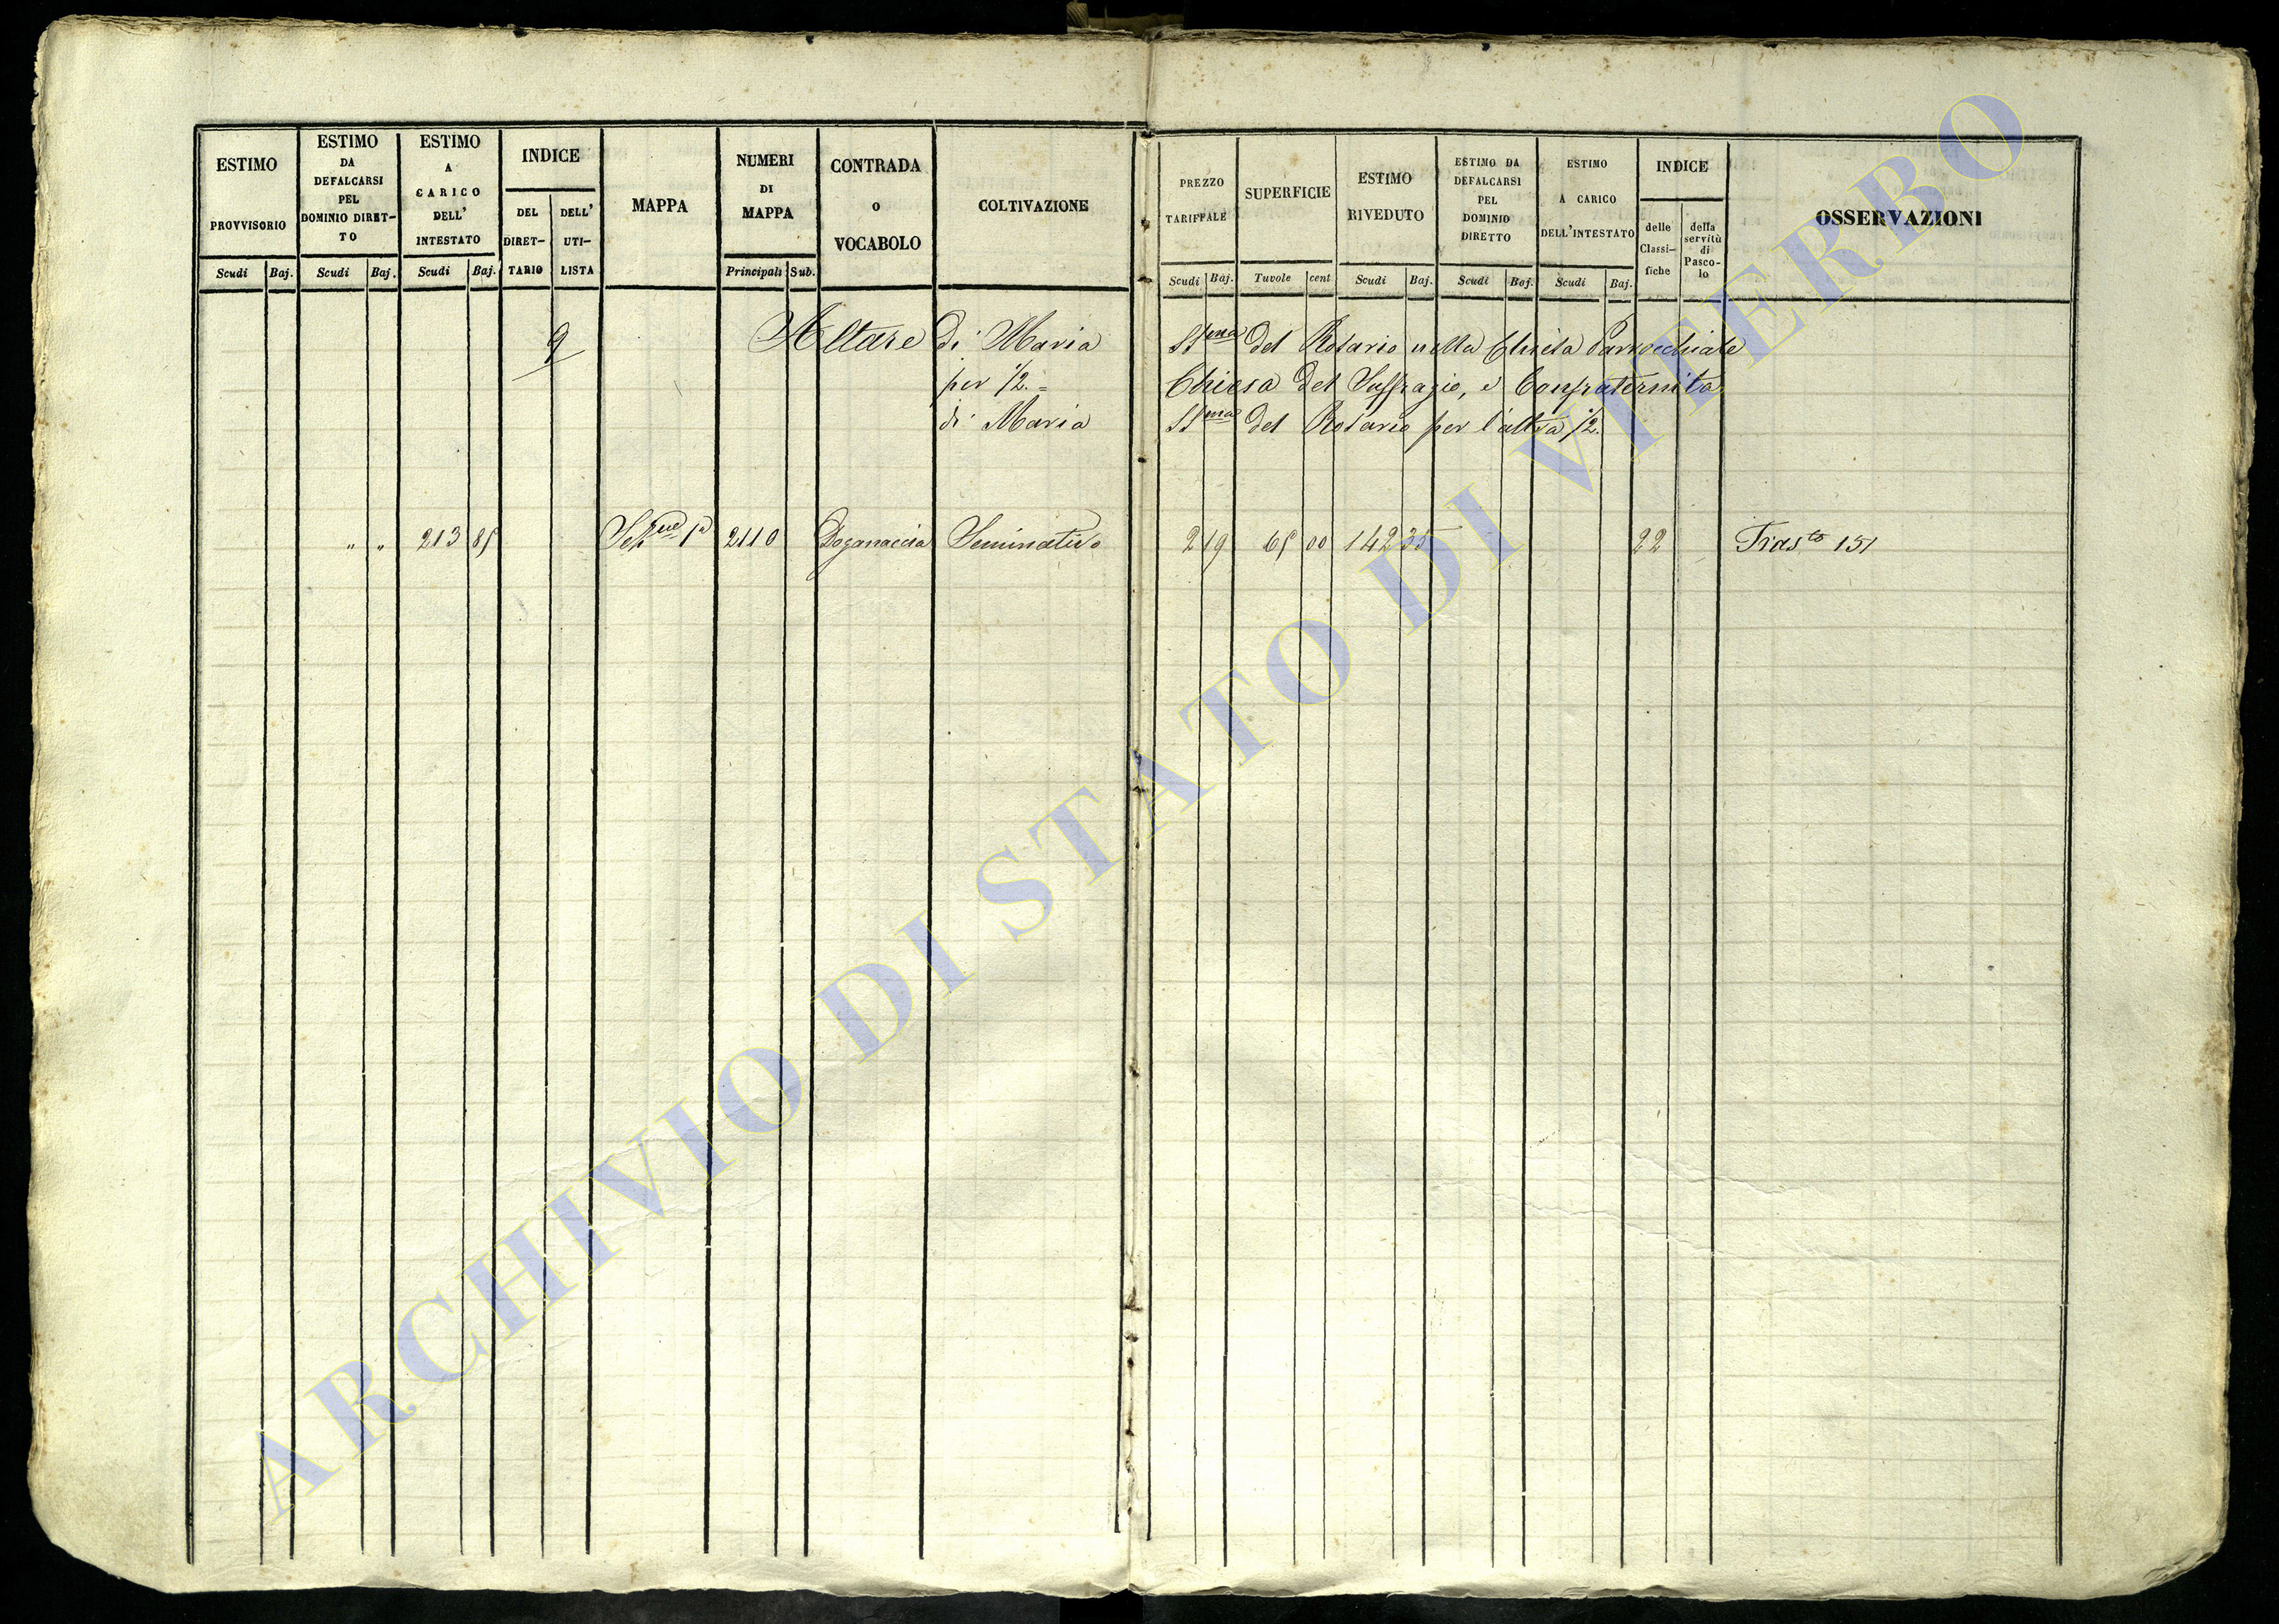 ESTIMO PROVVISORIO
Scudi Baj.
ESTIMO DA DEFALCARSI PEL DOMINIO DIRET-TO
Scudi Baj.
ESTIMO A CARICO DELL' INTESTATO
Scudi Baj.
INDICE
DEL DIRET-TARIO
DELL' UTI-LISTA
MAPPA
NUMERI DI MAPPA
Principali Sub.
CONTRADA o VOCABOLO
COLTIVAZIONE
PREZZO TARIFFALE
Scudi Baj.
SUPERFICIE
Tavole cent
ESTIMO RIVEDUTO
Scudi Baj.
ESTIMO DA DEFALCARSI PEL DOMINIO DIRETTO
Scudi Baj.
ESTIMO A CARICO DELL'INTESTATO
Scudi Baj.
INDICE
delle Classi-fiche
della servitù di Pasco-lo
OSSERVAZIONI
9 Altare di Maria SSma del Rosario nella Chiesa Parrocchiale
per 1/2. = Chiesa del Suffragio, e Confraternita
di Maria SSma del Rosario per l'altra 1/2.
" " 213 85 2110 Doganaccia Seminativo 2 19 65 00 142 35 22 151
ARCHIVIO DI STATO DI VITERBO